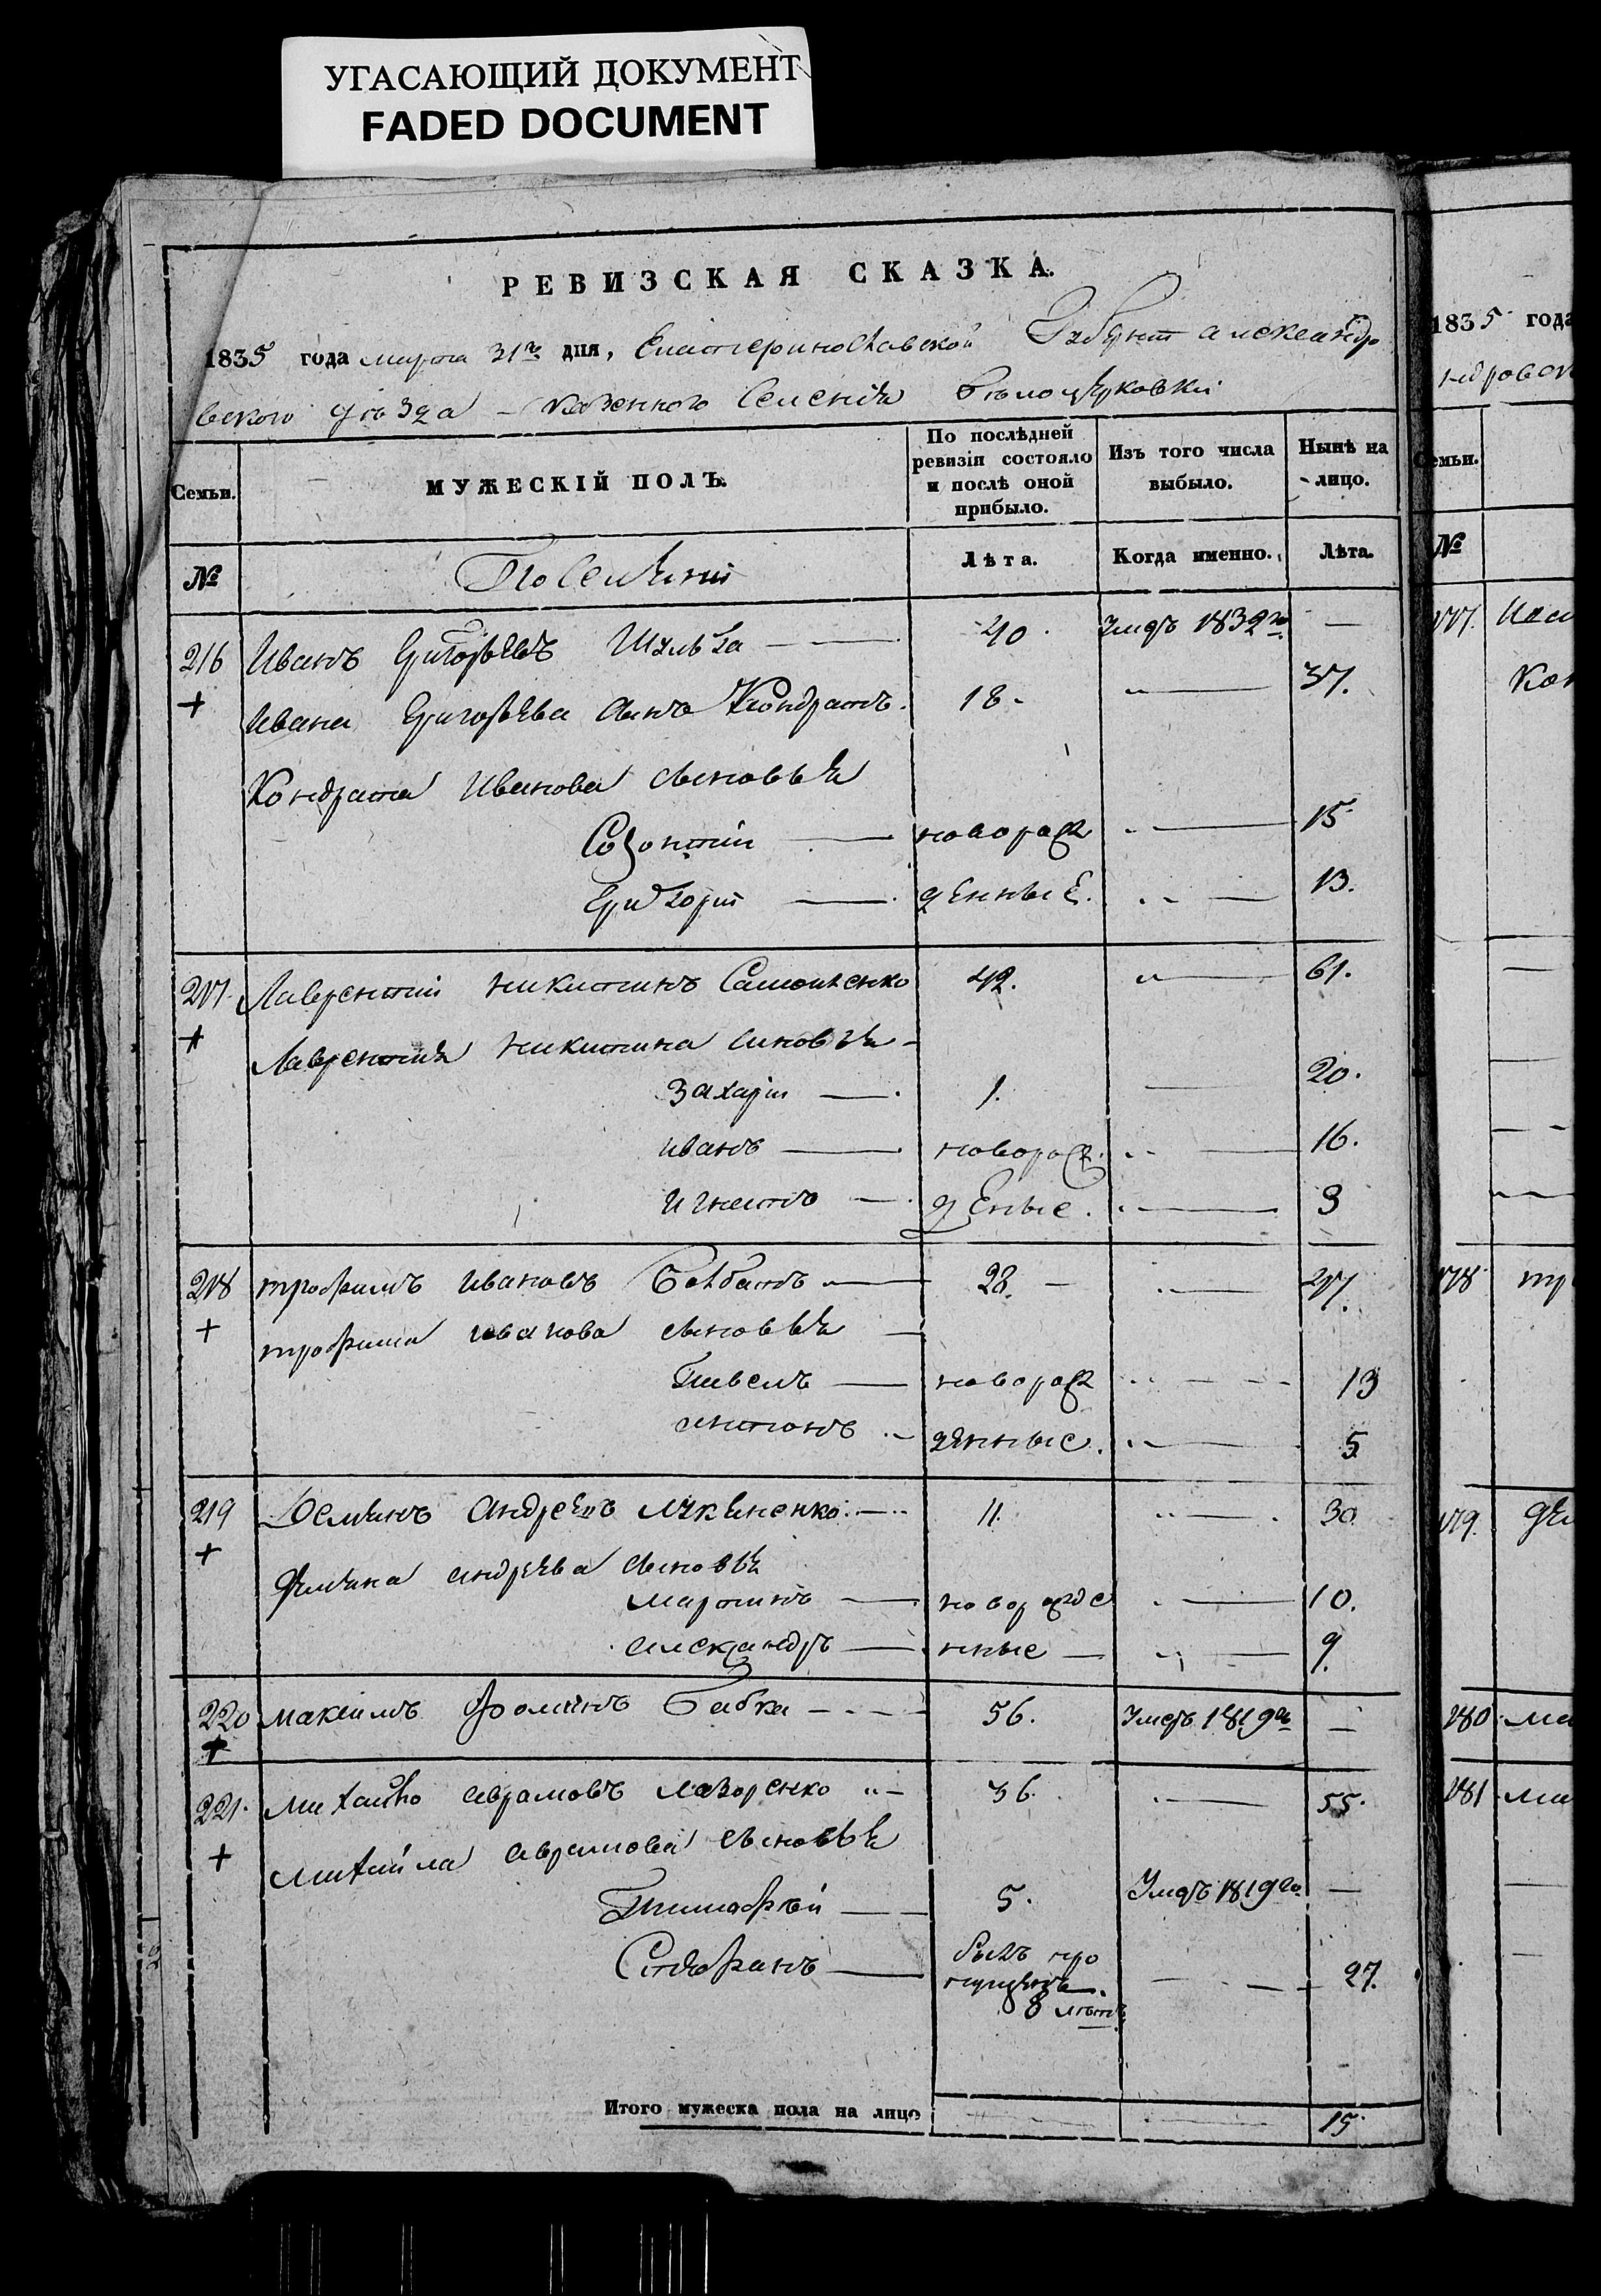 УГАСАЮЩИЙ ДОКУМЕНТ
FADED DOCUMENT
РЕВИЗСКАЯ СКАЗКА.
1835 года марта 31го дня, Екатеринославской Губерніи александро
вского уѣзда казенного Селенія Бѣлоцерковки
Семьи.
МУЖЕСКІЙ ПОЛЪ.
По послѣдней ревизіи состояло и послѣ оной прибыло.
Изъ того числа выбыло.
Ныне на лицо.
№
Поселяни
Лѣта.
Когда именно.
Лѣта.
216 Иванъ Григорьевъ Шульга 40. Умеръ 1832го —
+ Ивана Григорьева сынъ Кондратъ. 18. 37.
Кондрата Иванова сыновья
Созонтій новорож 15
Григорій денные. 13.
217. Лаврентій Никитинъ Самойленко 42. 61.
+ Лаврентия Никитина синовья
Захарій 1. 20.
иванъ новорож. 16.
игнатъ деные. 3
218 трофимъ ивановъ Балбатъ 28. 47.
+ трофима иванова сыновья
Павелъ новорож 13
антонъ денные. 5
219 Демянъ Андреевъ Лукяненко 11. 30
+ Демяна андреева сыновья
мартинъ новорожде 10.
александръ нные 9.
220 максимъ Фоминъ Бабка 56. Умеръ 1819го —
+
221. михайло аврамовъ лазоренко 36. 55.
+ михайла аврамова сыновья
Тимофѣй 5. Умеръ 1819го —
Стефанъ былъ про
пущенъ. 27.
8 летъ
Итого мужеска пола на лицо 15
1835 года
ндровск
Семьи.
№